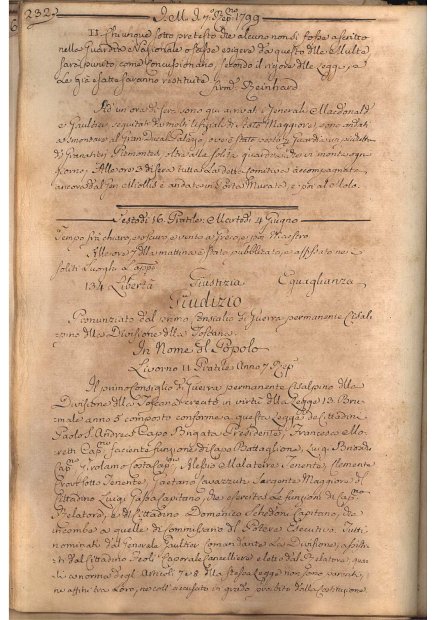 232.
J. M. J. 7. Rep. 1799
II. Chiunque sotto pretesto che alcuno non si fosse ascritto
nella Guardia Nazionale osasse esigere da questo delle Multe
sarà punito come Concussionario, secondo il rigore delle Leggi, e
le già esatte saranno restituite
Reinhard
un ora di sera sono qui arrivati i Generali Macdonald
e Gaultier, seguitati da molti Ufiziali di Stato Maggiore, e sono andati
a smontare al Gran Ducal Palazzo, ove è stato
di Granatieri Piemontesi, oltre alla solita
giorno. Alle ore 3 di sera tutta la
ancora dal Gen. Miollis è andata in Porta Murata e poi al Molo.
Sestodì 16. Pratile: Martedì 4 Giugno
Tempo fra chiaro, e oscuro, e vento a Greco, e poi Maestro
Alle ore 7 della mattina è stato pubblicato, e affisso nei
soliti Luoghi
134 Libertà Giustizia Eguaglianza
Giudizio
Pronunziato dal primo Consiglio di Guerra permanente Cisal-
pino della Divisione della Toscana.
In Nome del Popolo
Livorno 11 Pratile Anno 7 Rep.
Il primo Consiglio di Guerra permanente Cisalpino della
Divisione della Toscana creato in virtù della Legge 13 Bru-
male anno 5 composto conforme a questa Legge de Cittadini
Paolo S. Andrea Capo Brigata Presidente, Francesco Mo-
retti Cap. facente funzione di Capo Battaglione, Luigi
Cap. Girolamo Costa Cap. Alessio Malatoire Tenente, Clemente
Sotto Tenente, Gaetano Sergente Maggiore, del
Cittadino Luigi Capitano, che esercita le funzioni di Cap.
Relatore, e del Cittadino Domenico Capitano, che
incombe a quelle di Commissario del Potere Esecutivo Tutti
nominati dal Generale Gaultier comandante la Divisione, assisti-
ti dal Cittadino Caporale Cancelliere eletto dal Relatore, qua-
li a norma degl' Articoli 7 e 8 della stessa Legge non sono parenti,
ne affini tra loro, ne coll' accusato in grado proibito dalla Costituzione.